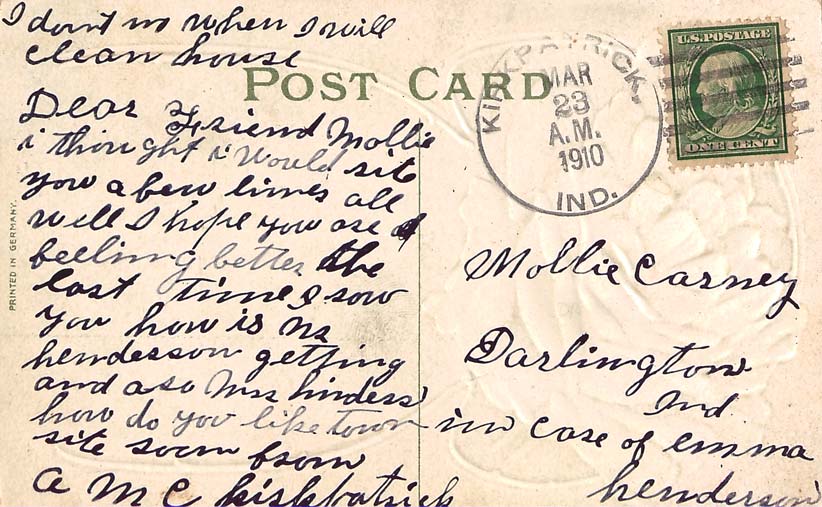 I dont no when I will
clean house
POST CARD
KIRKPATRICK,
MAR
23
A.M.
1910
IND.
U.S. POSTAGE
ONE CENT
PRINTED IN GERMANY.
Dear Friend Mollie
i thought i would site
you a few lines all
well I hope you are
feeling better the
last time I sow
you how is Ms
henderson getting
and aso Mrs hinders
how do you like town
site soon from
a M C kirkpatrick
Mollie Carney
Darlington
Ind
in case of emma
henderson